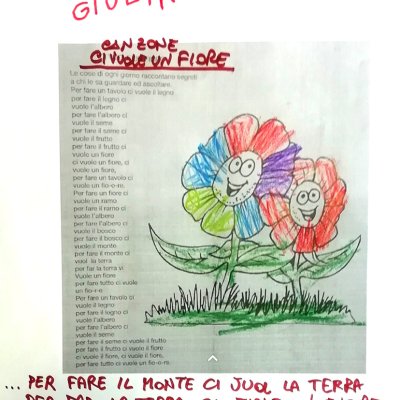 CANZONE
CI VUOLE UN FIORE
Le cose di ogni giorno raccontano segreti
a chi le sa guardare ed ascoltare.
Per fare un tavolo ci vuole il legno
per fare il legno ci
vuole l'albero
per fare l'albero ci
vuole il seme
per fare il seme ci
vuole il frutto
per fare il frutto ci
vuole un fiore
ci vuole un fiore, ci
vuole un fiore,
per fare un tavolo ci
vuole un fio-o-re.
Per fare un fiore ci
vuole un ramo
per fare il ramo ci
vuole l'albero
per fare l'albero ci
vuole il bosco
per fare il bosco ci
vuole il monte
per fare il monte ci
vuol la terra
per far la terra vi
Vuole un fiore
per fare tutto ci vuole
un fio-r-e
Per fare un tavolo ci
vuole il legno
per fare il legno ci
vuole l'albero
per fare l'albero ci
vuole il seme
per fare il seme ci vuole il frutto
per fare il frutto ci vuole il fiore
ci vuole il fiore, ci vuole il fiore,
per fare tutto ci vuole un fio-o-re.
... PER FARE IL MONTE CI JUOL LA TERRA